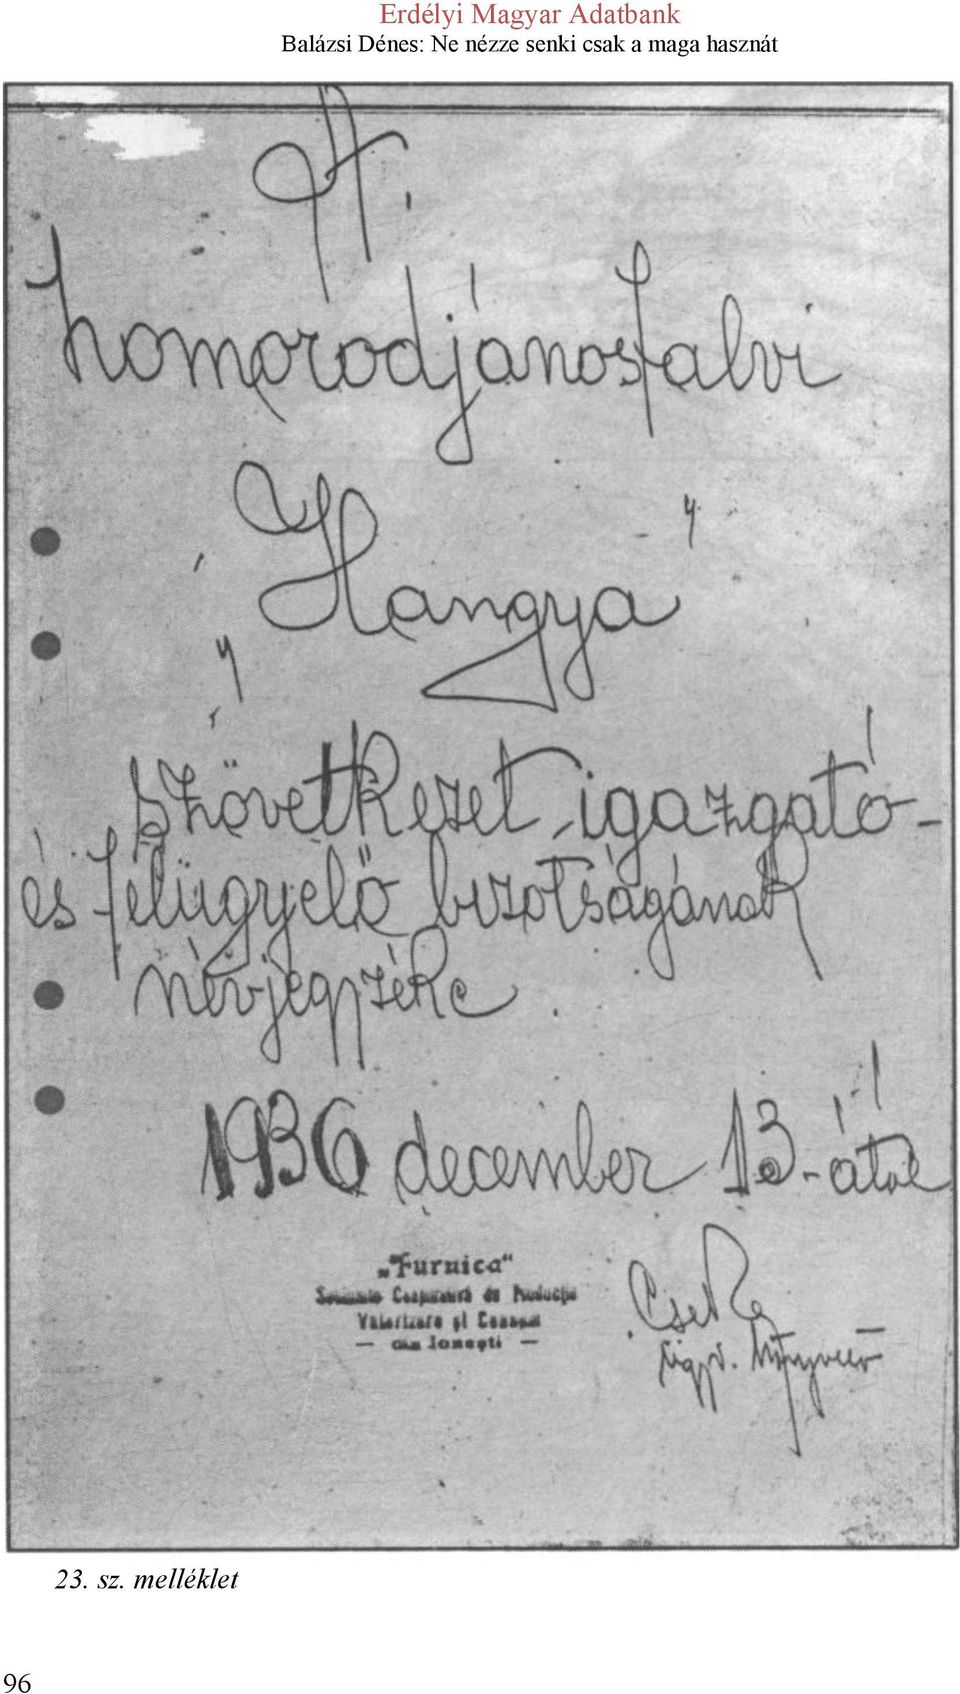 Erdélyi Magyar Adatbank
Balázsi Dénes: Ne nézze senki csak a maga hasznát
A.
homoródjánosfalvi
„Hangya"
szövetkezet igazgató-
és felügyelő bizotságának
névjegyzéke.
1936 december 13-ától
„Furnica"
Cooperativă de Producție
Valorizare și Consum
— din Ionești —
Cseke
ügyv. könyvelő
23. sz. melléklet
96